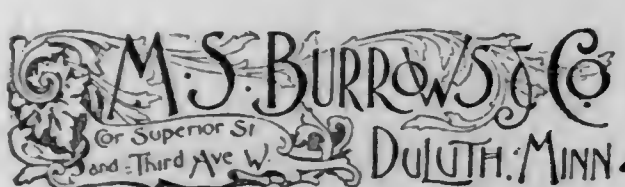 M. S. BURROWS & Co
Cor Superior St
and Third Ave W.
DULUTH. MINN.